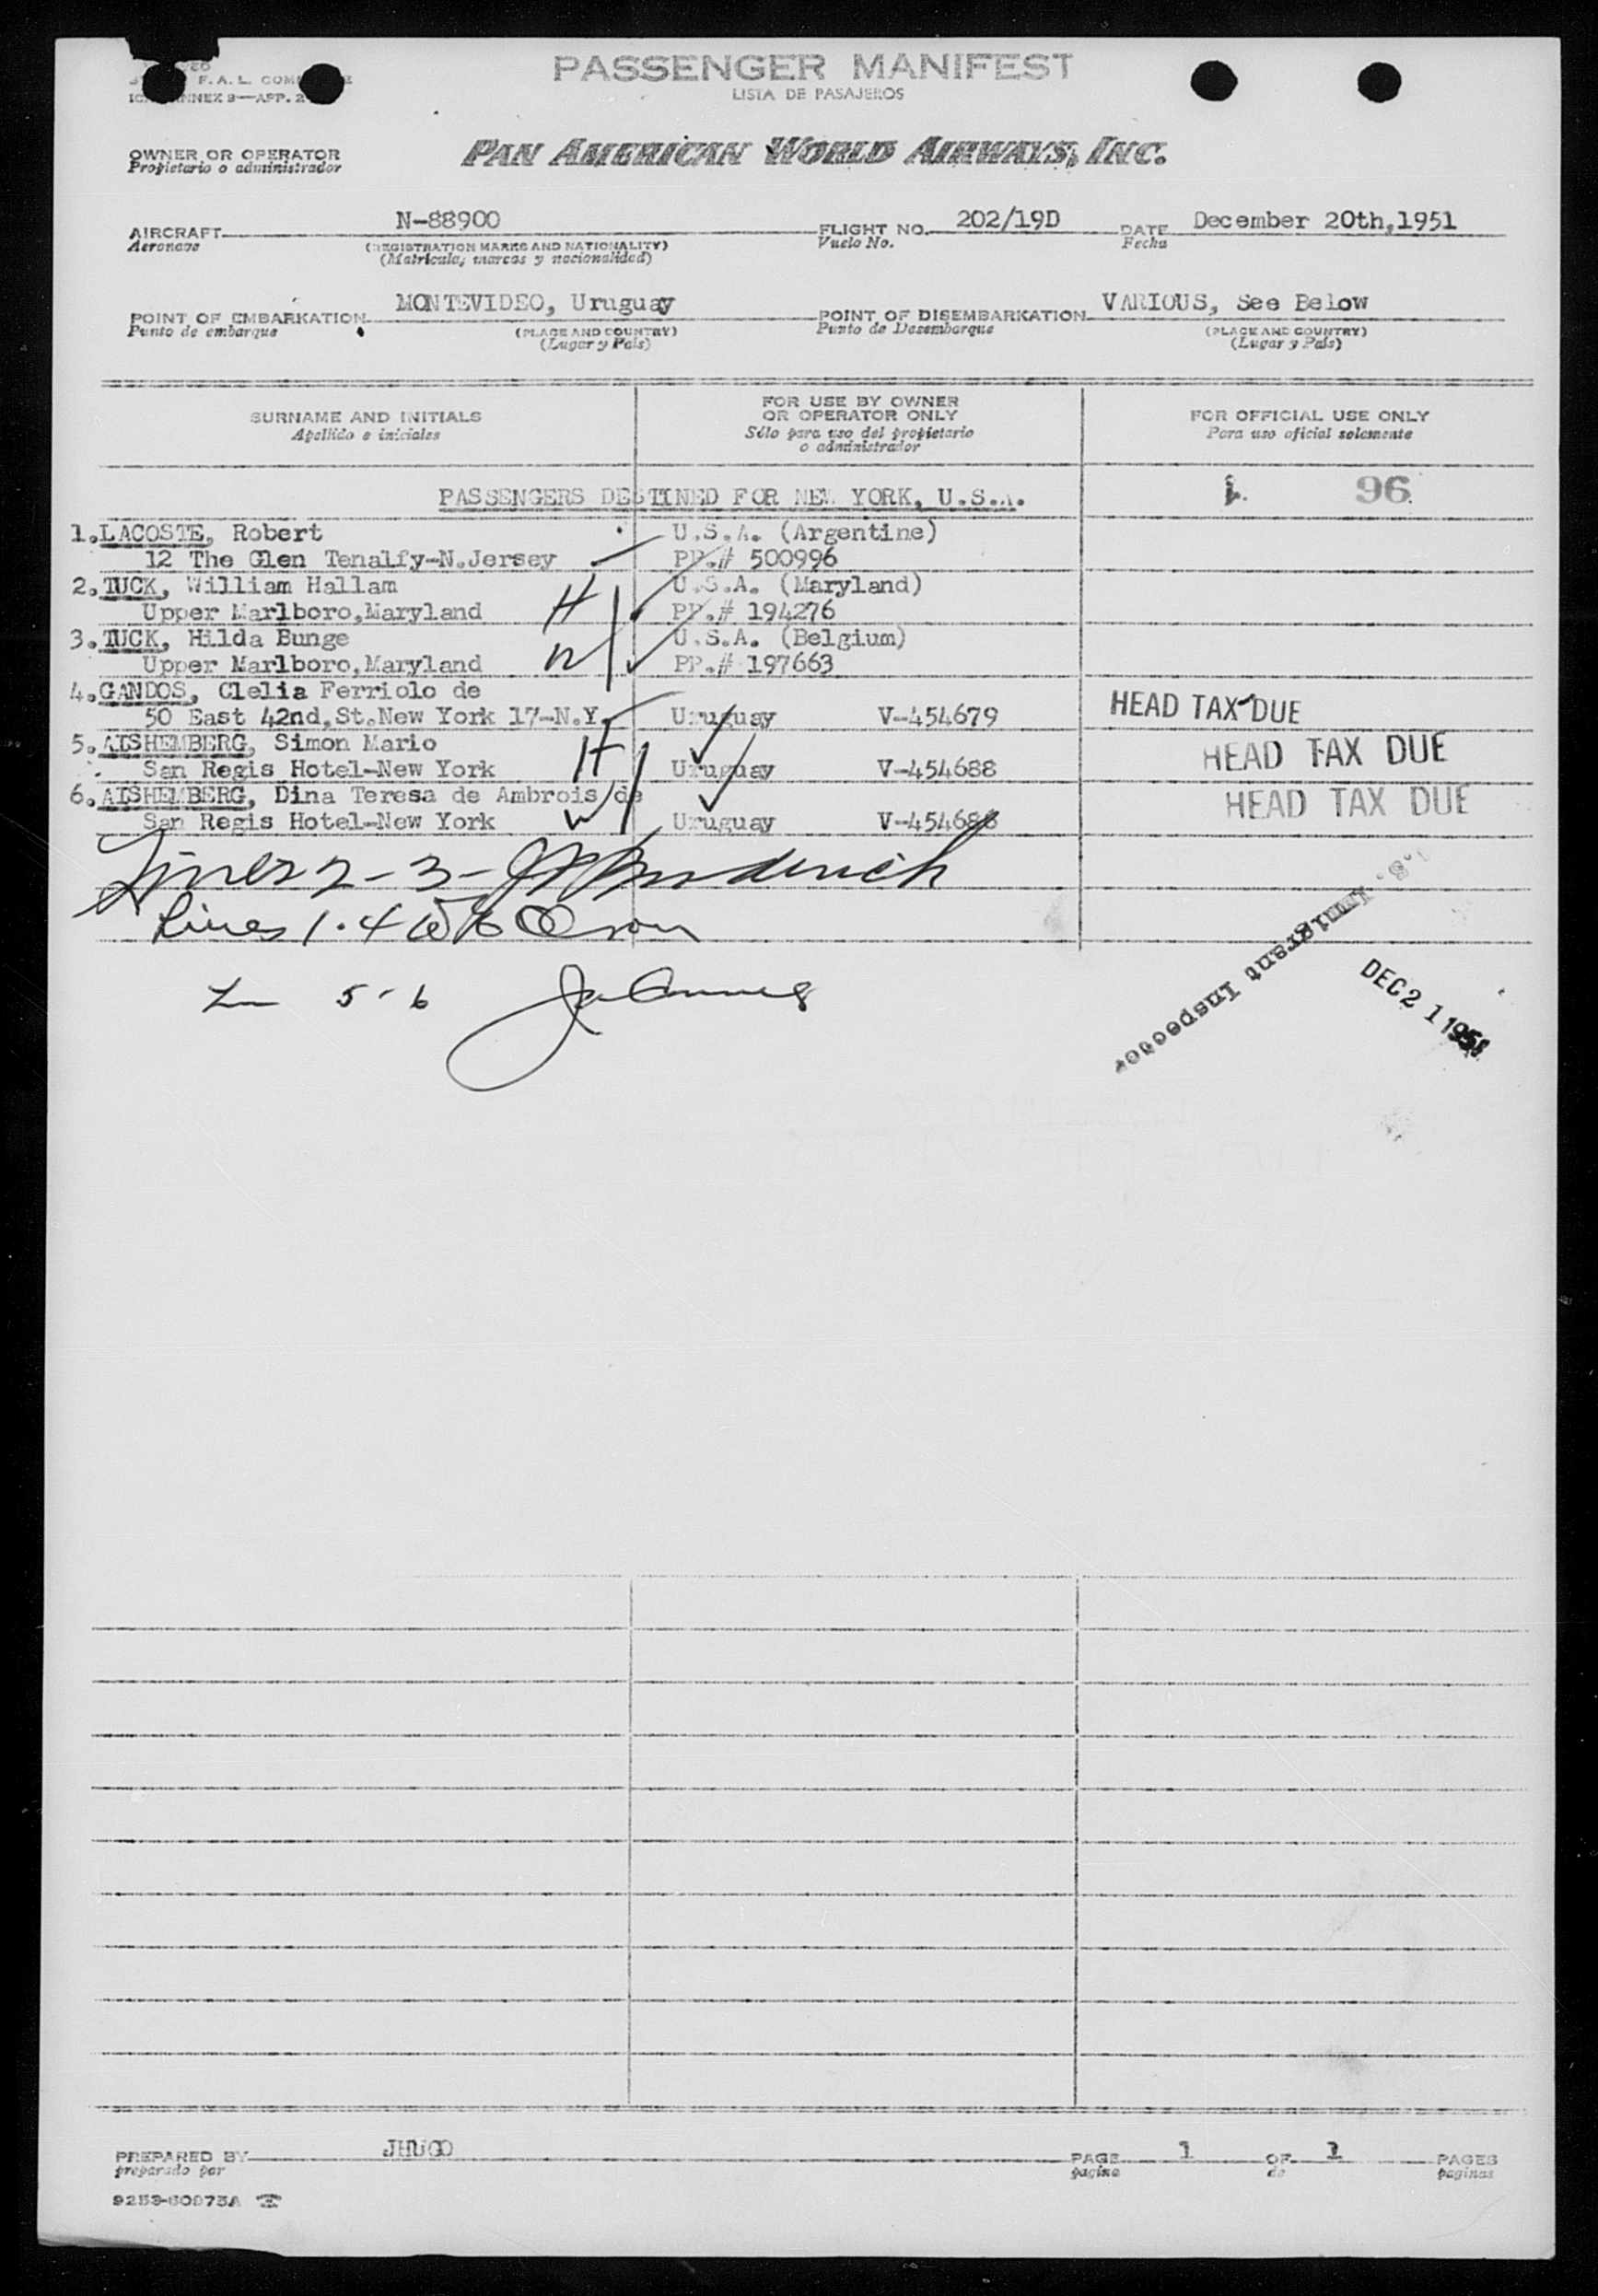 F.A.L.
PASSENGER MANIFEST
LISTA DE PASAJEROS
OWNER OR OPERATOR
Propietario o administrador
PAN AMERICAN WORLD AIRWAYS, INC.
AIRCRAFT N-88900 FLIGHT NO. 202/19D DATE December 20th,1951
Aeronave (REGISTRATION MARKS AND NATIONALITY) Vuelo No. Fecha
(Matricula, marcas y nacionalidad)
POINT OF EMBARKATION MONTEVIDEO, Uruguay POINT OF DISEMBARKATION VARIOUS, See Below
Punto de embarque (PLACE AND COUNTRY) Punto de Desembarque (PLACE AND COUNTRY)
(Lugar y Pais) (Lugar y Pais)
SURNAME AND INITIALS FOR USE BY OWNER OR OPERATOR ONLY FOR OFFICIAL USE ONLY
Apellido e iniciales Sólo para uso del propietario o administrador Para uso oficial solamente
PASSENGERS DESTINED FOR NEW YORK, U.S.A. 96
1.LACOSTE, Robert U.S.A. (Argentine)
12 The Glen Tenalfy-N.Jersey PP.# 500996
2.TUCK, William Hallam U.S.A. (Maryland)
Upper Marlboro,Maryland H PP.# 194276
3.TUCK, Hilda Bunge U.S.A. (Belgium)
Upper Marlboro,Maryland W PP.# 197663
4.GANDOS, Clelia Ferriolo de
50 East 42nd,St.New York 17-N.Y. Uruguay V-454679 HEAD TAX DUE
5.AISHEMBERG, Simon Mario
San Regis Hotel-New York H Uruguay V-454688 HEAD TAX DUE
6.AISHEMBERG, Dina Teresa de Ambrois de HEAD TAX DUE
San Regis Hotel-New York W Uruguay V-454688
Lines 2-3-
Lines 1.4
5-6
Immigrant Inspector
DEC 21 1951
PREPARED BY JHUGO PAGE 1 OF 1 PAGES
preparado por pagina de paginas